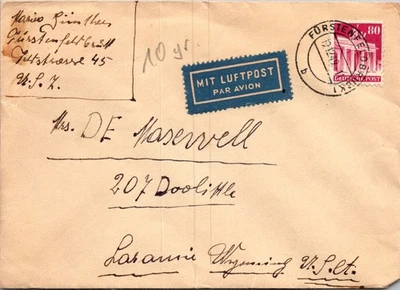 Mario Günther
Fürstenfeldbruck
Julstrasse 45
U.S.Z.
10 gr.
MIT LUFTPOST
PAR AVION
FÜRSTENFELDBRUCK
b
80
DEUTSCHE POST
Mrs. DE Maxwell
207 Doolittle
Laramie Wyoming U.S.A.